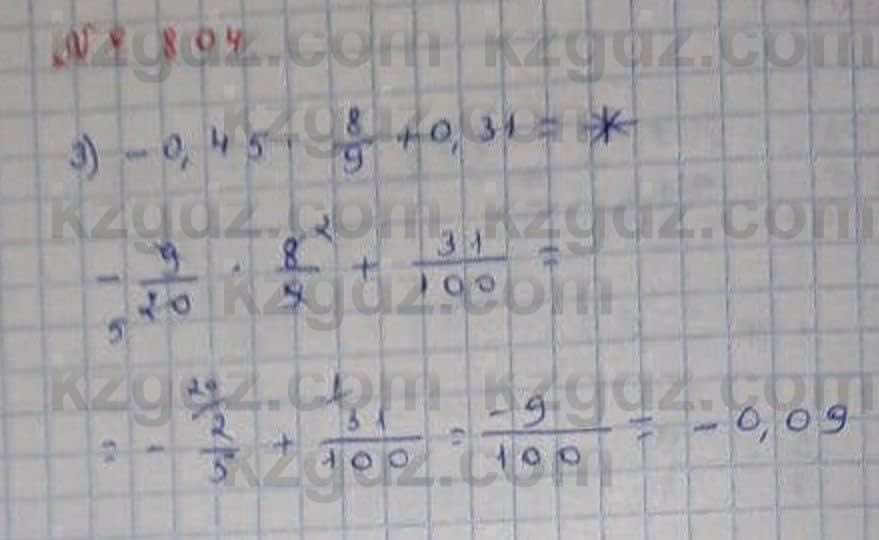 № 804
3) -0,45 · 8/9 + 0,31 = *
- 9/20 · 8/9 + 31/100 =
5 2
= - 2/5 + 31/100 = -9/100 = -0,09
20 1
kzgdz.com kzgdz.com
kzgdz.com
kzgdz.com kzgdz.com
kzgdz.com
kzgdz.com kzgdz.com
kzgdz.com